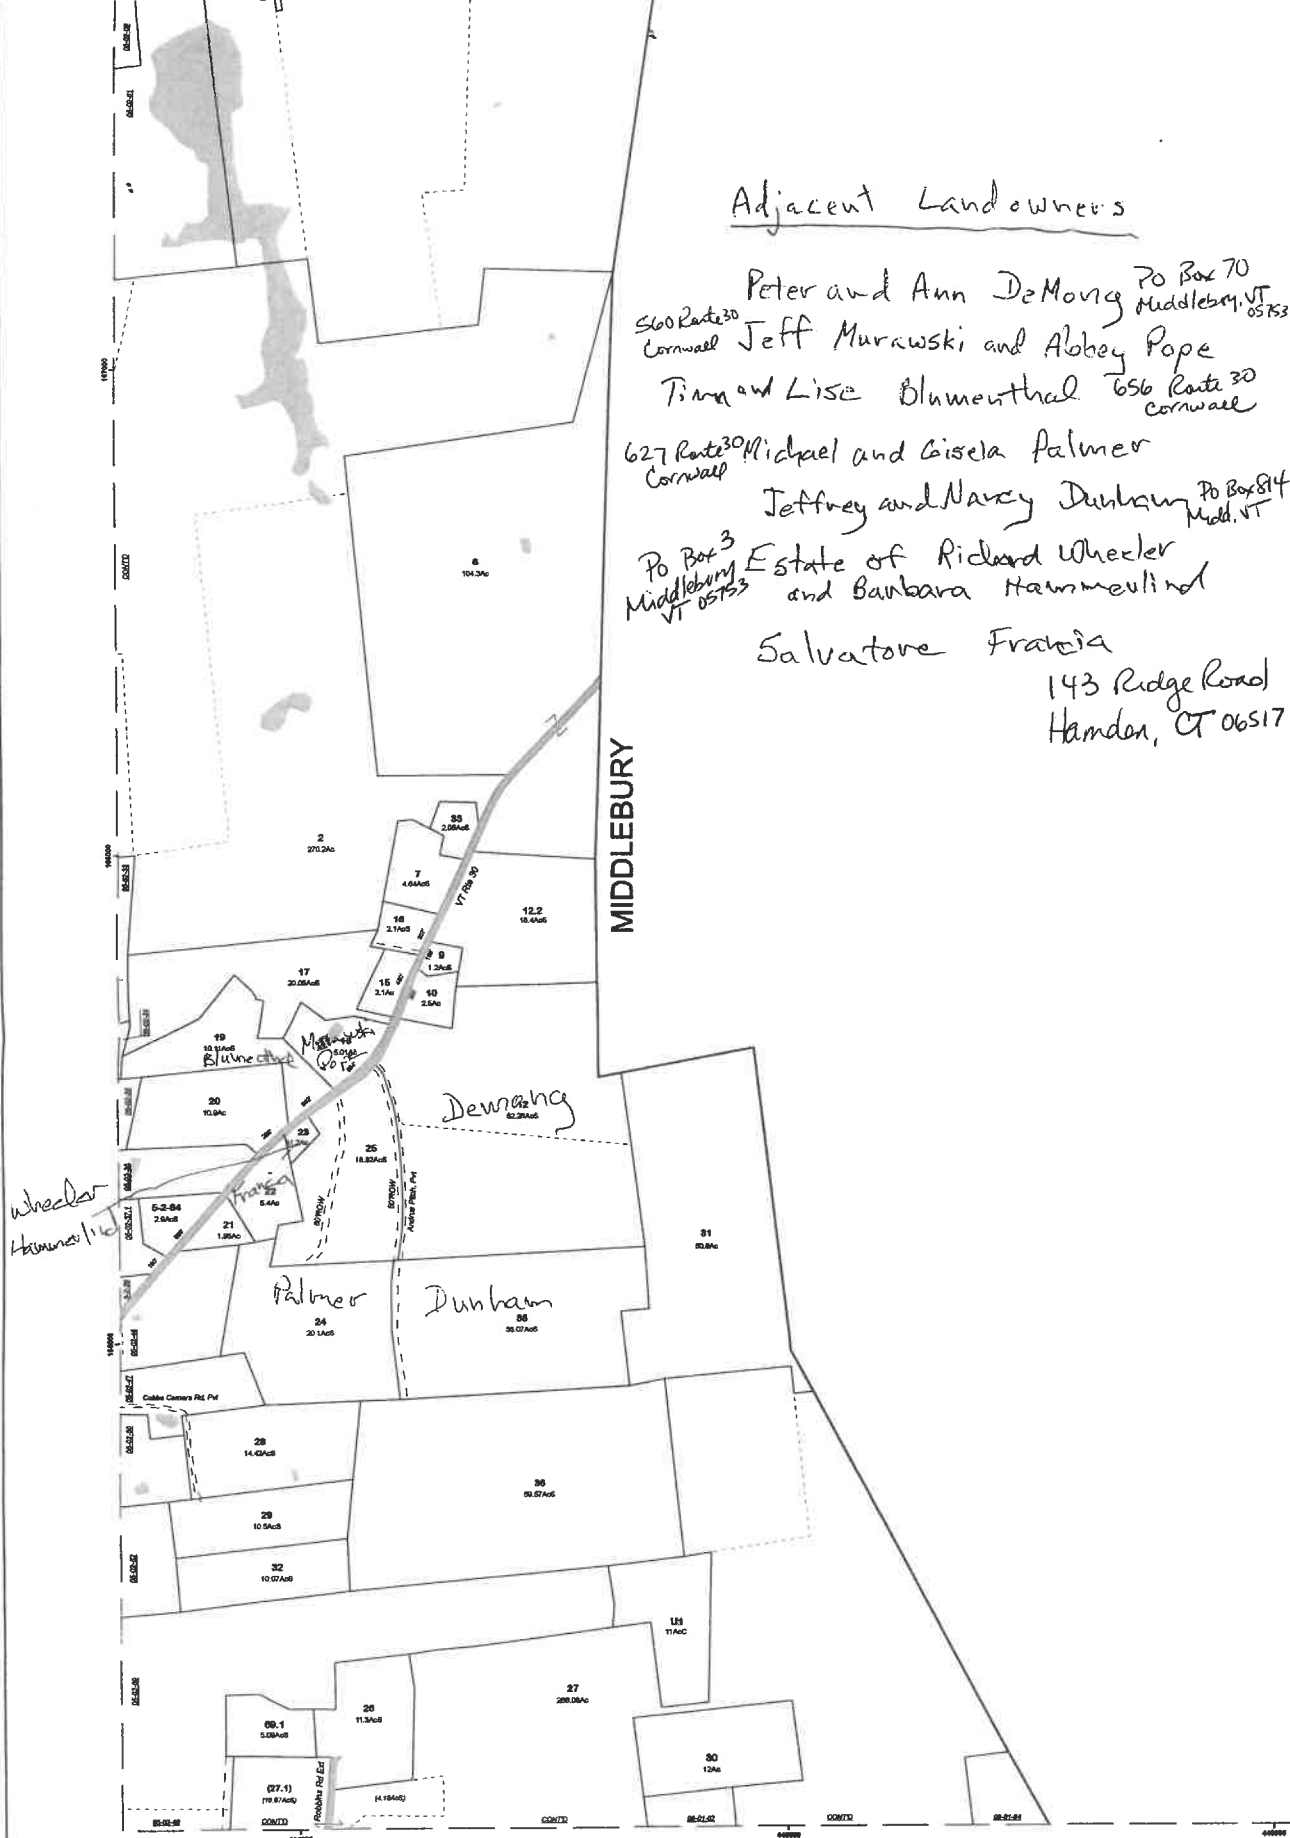 Adjacent Landowners
Peter and Ann DeMong PO Box 70
Middlebury, VT 05753
560 Route 30
Cornwall
Jeff Murawski and Abbey Pope
Tim and Lise Blumenthal 656 Route 30
Cornwall
627 Route 30
Cornwall
Michael and Gisela Palmer
Jeffrey and Nancy Dunham PO Box 814
Midd. VT
PO Box 3
Middlebury
VT 05753
Estate of Richard Wheeler
and Barbara Hammerlind
Salvatore Francia
143 Ridge Road
Hamden, CT 06517
MIDDLEBURY
CONT'D
6
104.3Ac
2
270.2Ac
33
2.06AcS
7
4.64AcS
VT Rte 30
12.2
18.4AcS
16
2.1AcS
9
1.2AcS
17
20.08AcS
15
2.1Ac
10
2.5Ac
19
10.11AcS
Blumenthal
Murawski
Pope
20
10.9Ac
Demong
23
25
18.82AcS
Wheeler
Hammerlind
Francia
22
5.4Ac
5-2-64
2.9AcS
21
1.95Ac
50'ROW
50'ROW
Andrus Pitch, Pvt
31
50.8Ac
Palmer
24
20.1AcS
Dunham
35
36.07AcS
Cobbs Corners Rd, Pvt
28
14.43AcS
36
59.57AcS
29
10.5AcS
32
10.07AcS
U1
11AcC
27
268.08Ac
26
11.3AcS
69.1
5.09AcS
30
12Ac
(27.1)
(19.87AcS)
Robbins Rd Ext
(4.18AcS)
CONT'D
CONT'D
08-01-02
CONT'D